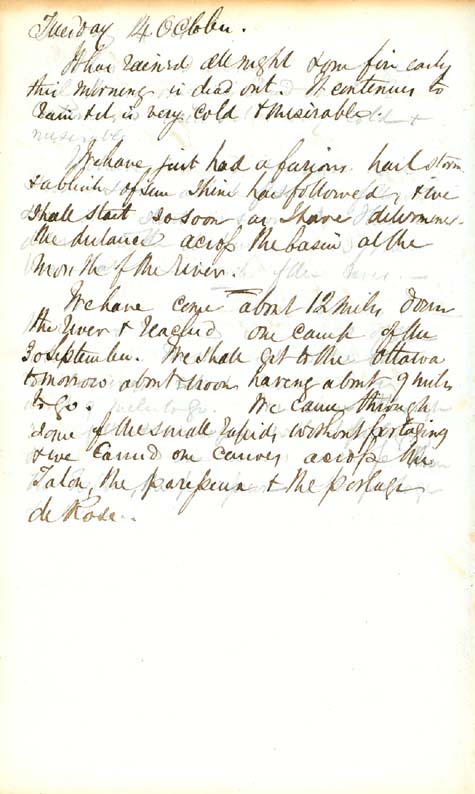 Tuesday 14 October.
It has rained all night & our fire early
this morning is dead out. It continues to
rain & it is very cold & miserable
We have just had a furious hail storm
& a blink of sun shine has followed, & we
shall start so soon as I have determined
the distance across the basin at the
mouth of the river.
We have come about 12 miles down
the river & reached our camp of the
30 September. We shall get to the Ottawa
tomorrow about noon having about 9 miles
to go. We came through
some of the small rapids without portaging
& we carried our canoes across the
Talon, the paresseux & the portage
de Rose.